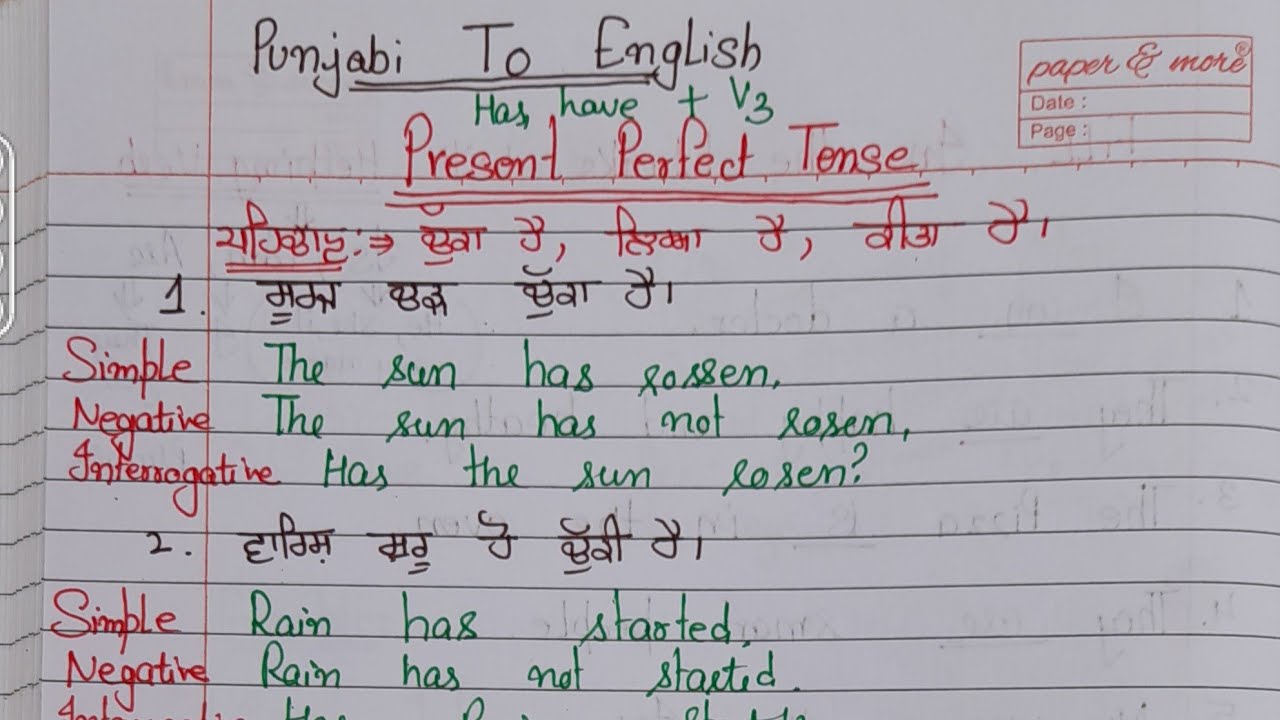 Punjabi To English
Has, have + V3
Present Perfect Tense
paper & more®
Date :
Page :
ਪਹਿਚਾਣ :⇒ ਚੁੱਕਾ ਹੈ, ਲਿਖਿਆ ਹੈ, ਕੀਤਾ ਹੈ।
1. ਸੂਰਜ ਚੜ ਚੁੱਕਾ ਹੈ।
Simple The sun has rossen.
Negative The sun has not rosen.
Interrogative Has the sun rosen?
2. ਵਾਰਿਸ਼ ਸ਼ੁਰੂ ਹੋ ਚੁੱਕੀ ਹੈ।
Simple Rain has started.
Negative Rain has not started.